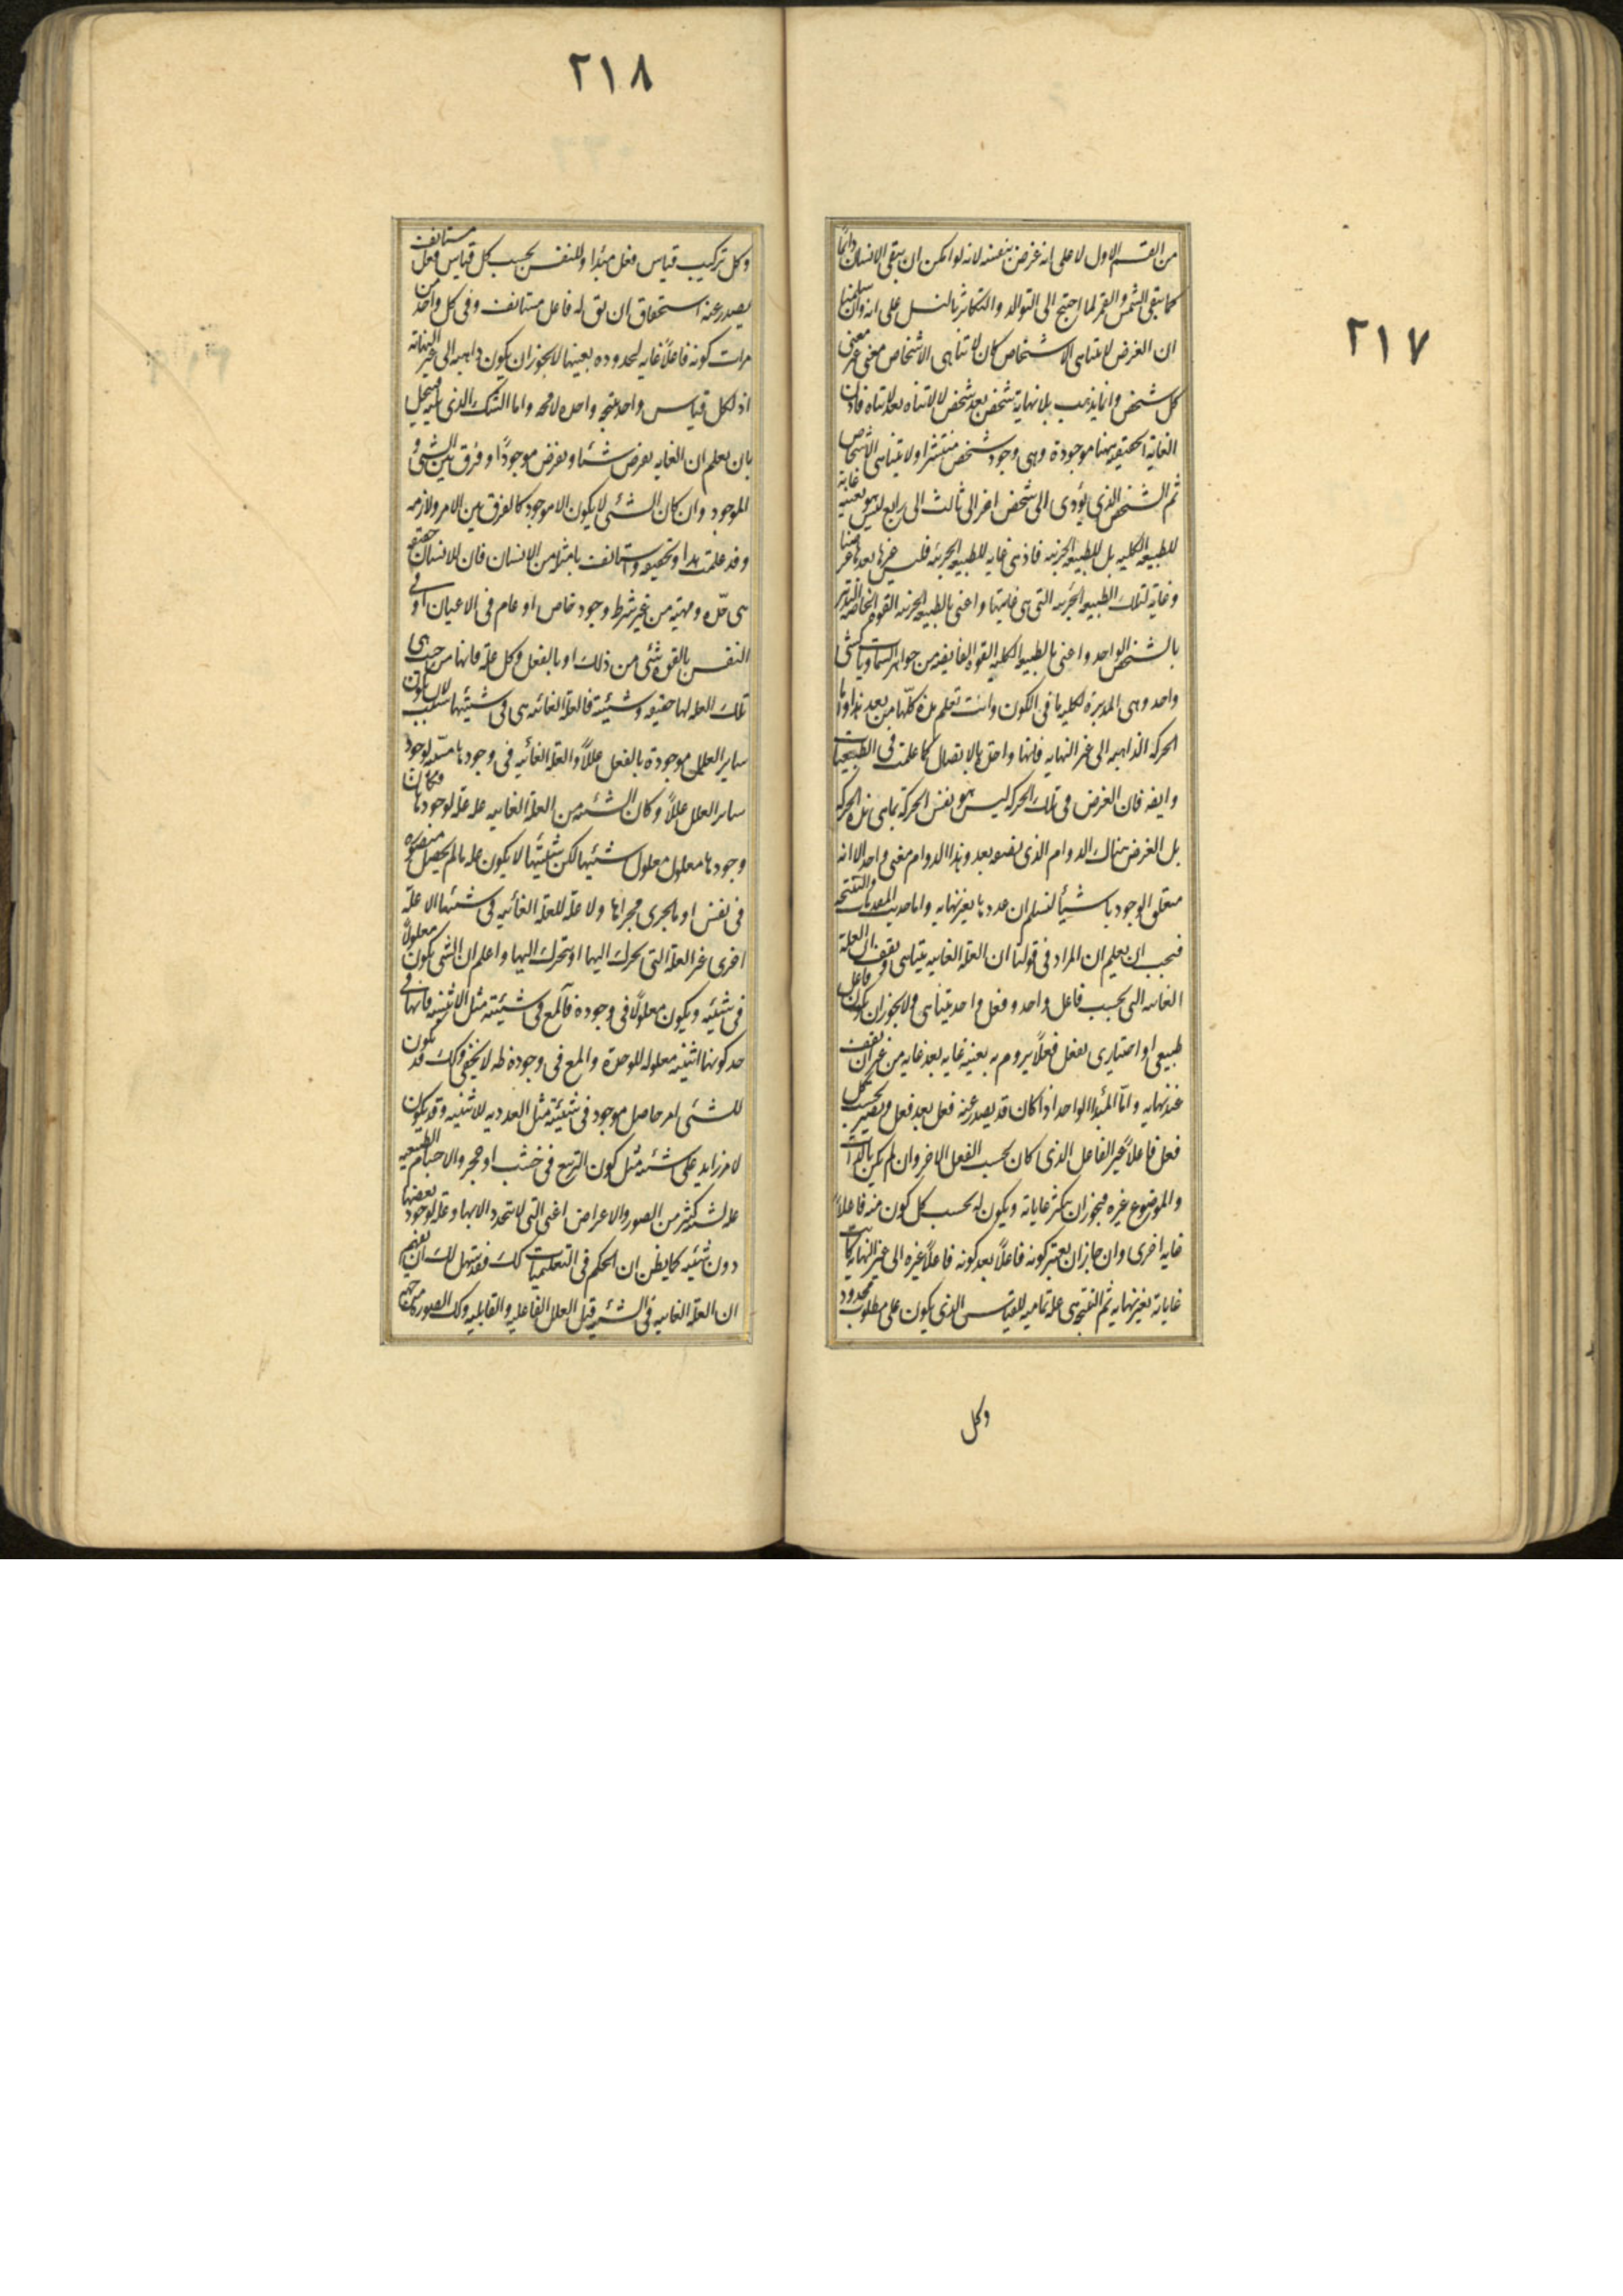 ٢١٧
من القسم الاول لا على انه غرض بنفسه لانه لو امكن ان يبقى الانسان دائما
كما يبقى الشمس والقمر لما احتيج الى التوالد والتكاثر بالنسل على انه وان سلمنا
ان الغرض لا يتناهى الاشخاص كان لا تناهى الاشخاص معنى غير معنى
كل شخص وانما يذهب بلا نهاية شخص بعد شخص لا لا تناه بعد لا تناه فاذن
الغاية الحقيقيه ههنا موجودة وهى وجود شخص منتشر او لا يتناهى الاشخاص
ثم الشخص الذى يؤدى الى شخص اخر الى ثالث الى رابع ليس هو بعينه غاية
للطبيعه الكليه بل للطبيعه الجزئيه فاذ هى غايه للطبيعه الجزئيه فليس غيرها بعدها غرضا
وغاية لتلك الطبيعه الجزئيه التى هى غايتها واعنى بالطبيعه الجزئيه القوه الخاصه التدبير
بالشخص الواحد واعنى بالطبيعه الكليه القوه الفايضه من جواهر السماويات كشئ
واحد وهى المدبرة لكلية ما فى الكون وانت تعلم هذه كلها من بعد هذا واما
الحركه الذاهبه الى غير النهايه فانها واحدة بالاتصال كما علمت فى الطبيعيات
وايضه فان الغرض فى تلك الحركه ليس هو نفس الحركة بما هى هذه الحركه
بل الغرض هناك الدوام الذى نصفه بعد وهذا الدوام معنى واحد الا انه
متعلق الوجود باشيأ لنسلم ان عددها بغير نهايه واما حديث المقدمات والنتيجه
فيجب ان يعلم ان المراد فى قولنا ان العلة الغايیه يتناهى ويقف ان العلة
الغائيه التى بحسب فاعل واحد وفعل واحد يتناهى ولا يجوز ان يكون فاعل
طبيعى او اختيارى يفعل فعلاً يروم به بعينه غايه بعد غايه من غير ان يقف
عند نهايه واما المبدأ الواحد اذا كان قد يصدر عنه فعل بعد فعل ويصير بحسب كل
فعل فاعلاً غير الفاعل الذى كان بحسب الفعل الاخر وان لم يكن بالذات
والموضوع غيره فيجوز ان يتكثر غاياته ويكون له بحسب كل كون منه فاعلاً
غايه اخرى وان جاز ان يعتبر كونه فاعلاً بعد كونه فاعلاً غيره الى غير النهايه كانت
غاياته بغير نهايه ثم النتيجه هى عله تماميه للقياس الذى يكون على مطلوب محدود
وكل
٢١٨
وكل تركيب قياس فعل مبتدا وللنفس بحسب كل قياس فعل مستانف
يصدر عنه استحقاق ان يق له فاعل مستانف وفى كل واحد من
مرات كونه فاعلاً غايه لمحدوده بعينها لا يجوز ان يكون ذاهبه الى غير النهاية
اذ لكل قياس واحد نتيجه واحده لا محه واما الشك الذى يليه فينحل
بان يعلم ان الغايه يفرض شيئا ويفرض موجوداً وفرق بين الشئ و
الموجود وان كان الشئ لا يكون الا موجود كالفرق بين الامر ولازمه
وقد علمت هذا وتحققه واستانف تامله من الانسان فان للانسان حقيقه
هى حده ومهيته من غير شرط وجود خاص او عام فى الاعيان او فى
النفس بالقوه شئ من ذلك او بالفعل وكل علة فانها من حيث هى
تلك العله لها حقيقه وشيئية فالعلة الغائيه هى فى شيئيتها سبب لان يكون
ساير العلل موجودة بالفعل عللاً والعلة الغائيه فى وجودها مسببه لوجود
ساير العلل عللاً وكان الشيئيه من العلة الغائيه عله علة لوجودها وكان
وجودها معلول معلول شيئيتها لكن شيئيتها لا يكون عله ما لم يحصل متصوره
فى نفس او ما يجرى مجراها ولا علة للعلة الغائيه فى شيئيتها الا علة
اخرى غير العلة التى تحرك اليها او يتحرك اليها واعلم ان الشئ يكون معلولاً
فى شيئيه ويكون معلولاً فى وجوده فالمع فى شيئيته مثل الاثنينيه فانها فى
حد كونها اثنينيه معلوله للوحدة والمع فى وجوده ظه لا يخفى وكك قد يكون
للشئ امر حاصل موجود فى شيئيته مثل العدديه للاثنينيه وقد يكون
لامر زايد على شيئيه مثل كون التربيع فى خشب او حجر والاجسام الطبيعيه
عله لشيئيه كثير من الصور والاعراض اعنى التى لا تتحدد الا بها وعلة لوجود بعضها
دون شيئيه كما يظن ان الحكم فى التعليميات كك فقد سهل لك ان تفهم
ان العلة الغائيه فى الشيئيه قبل العلل الفاعليه والقابليه وكك الصوره من جهة